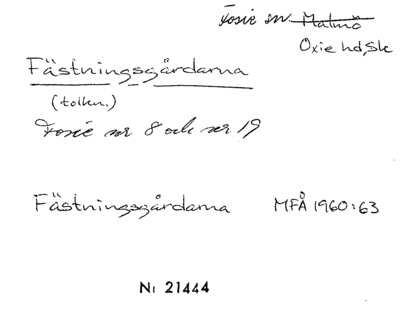 Fosie sn Malmö
Oxie hd, Sk
Fästningsgårdarna
(tolkn.)
Fosie nr 8 och nr 19
Fästningsgårdarna MFÅ 1960:63
Nr 21444